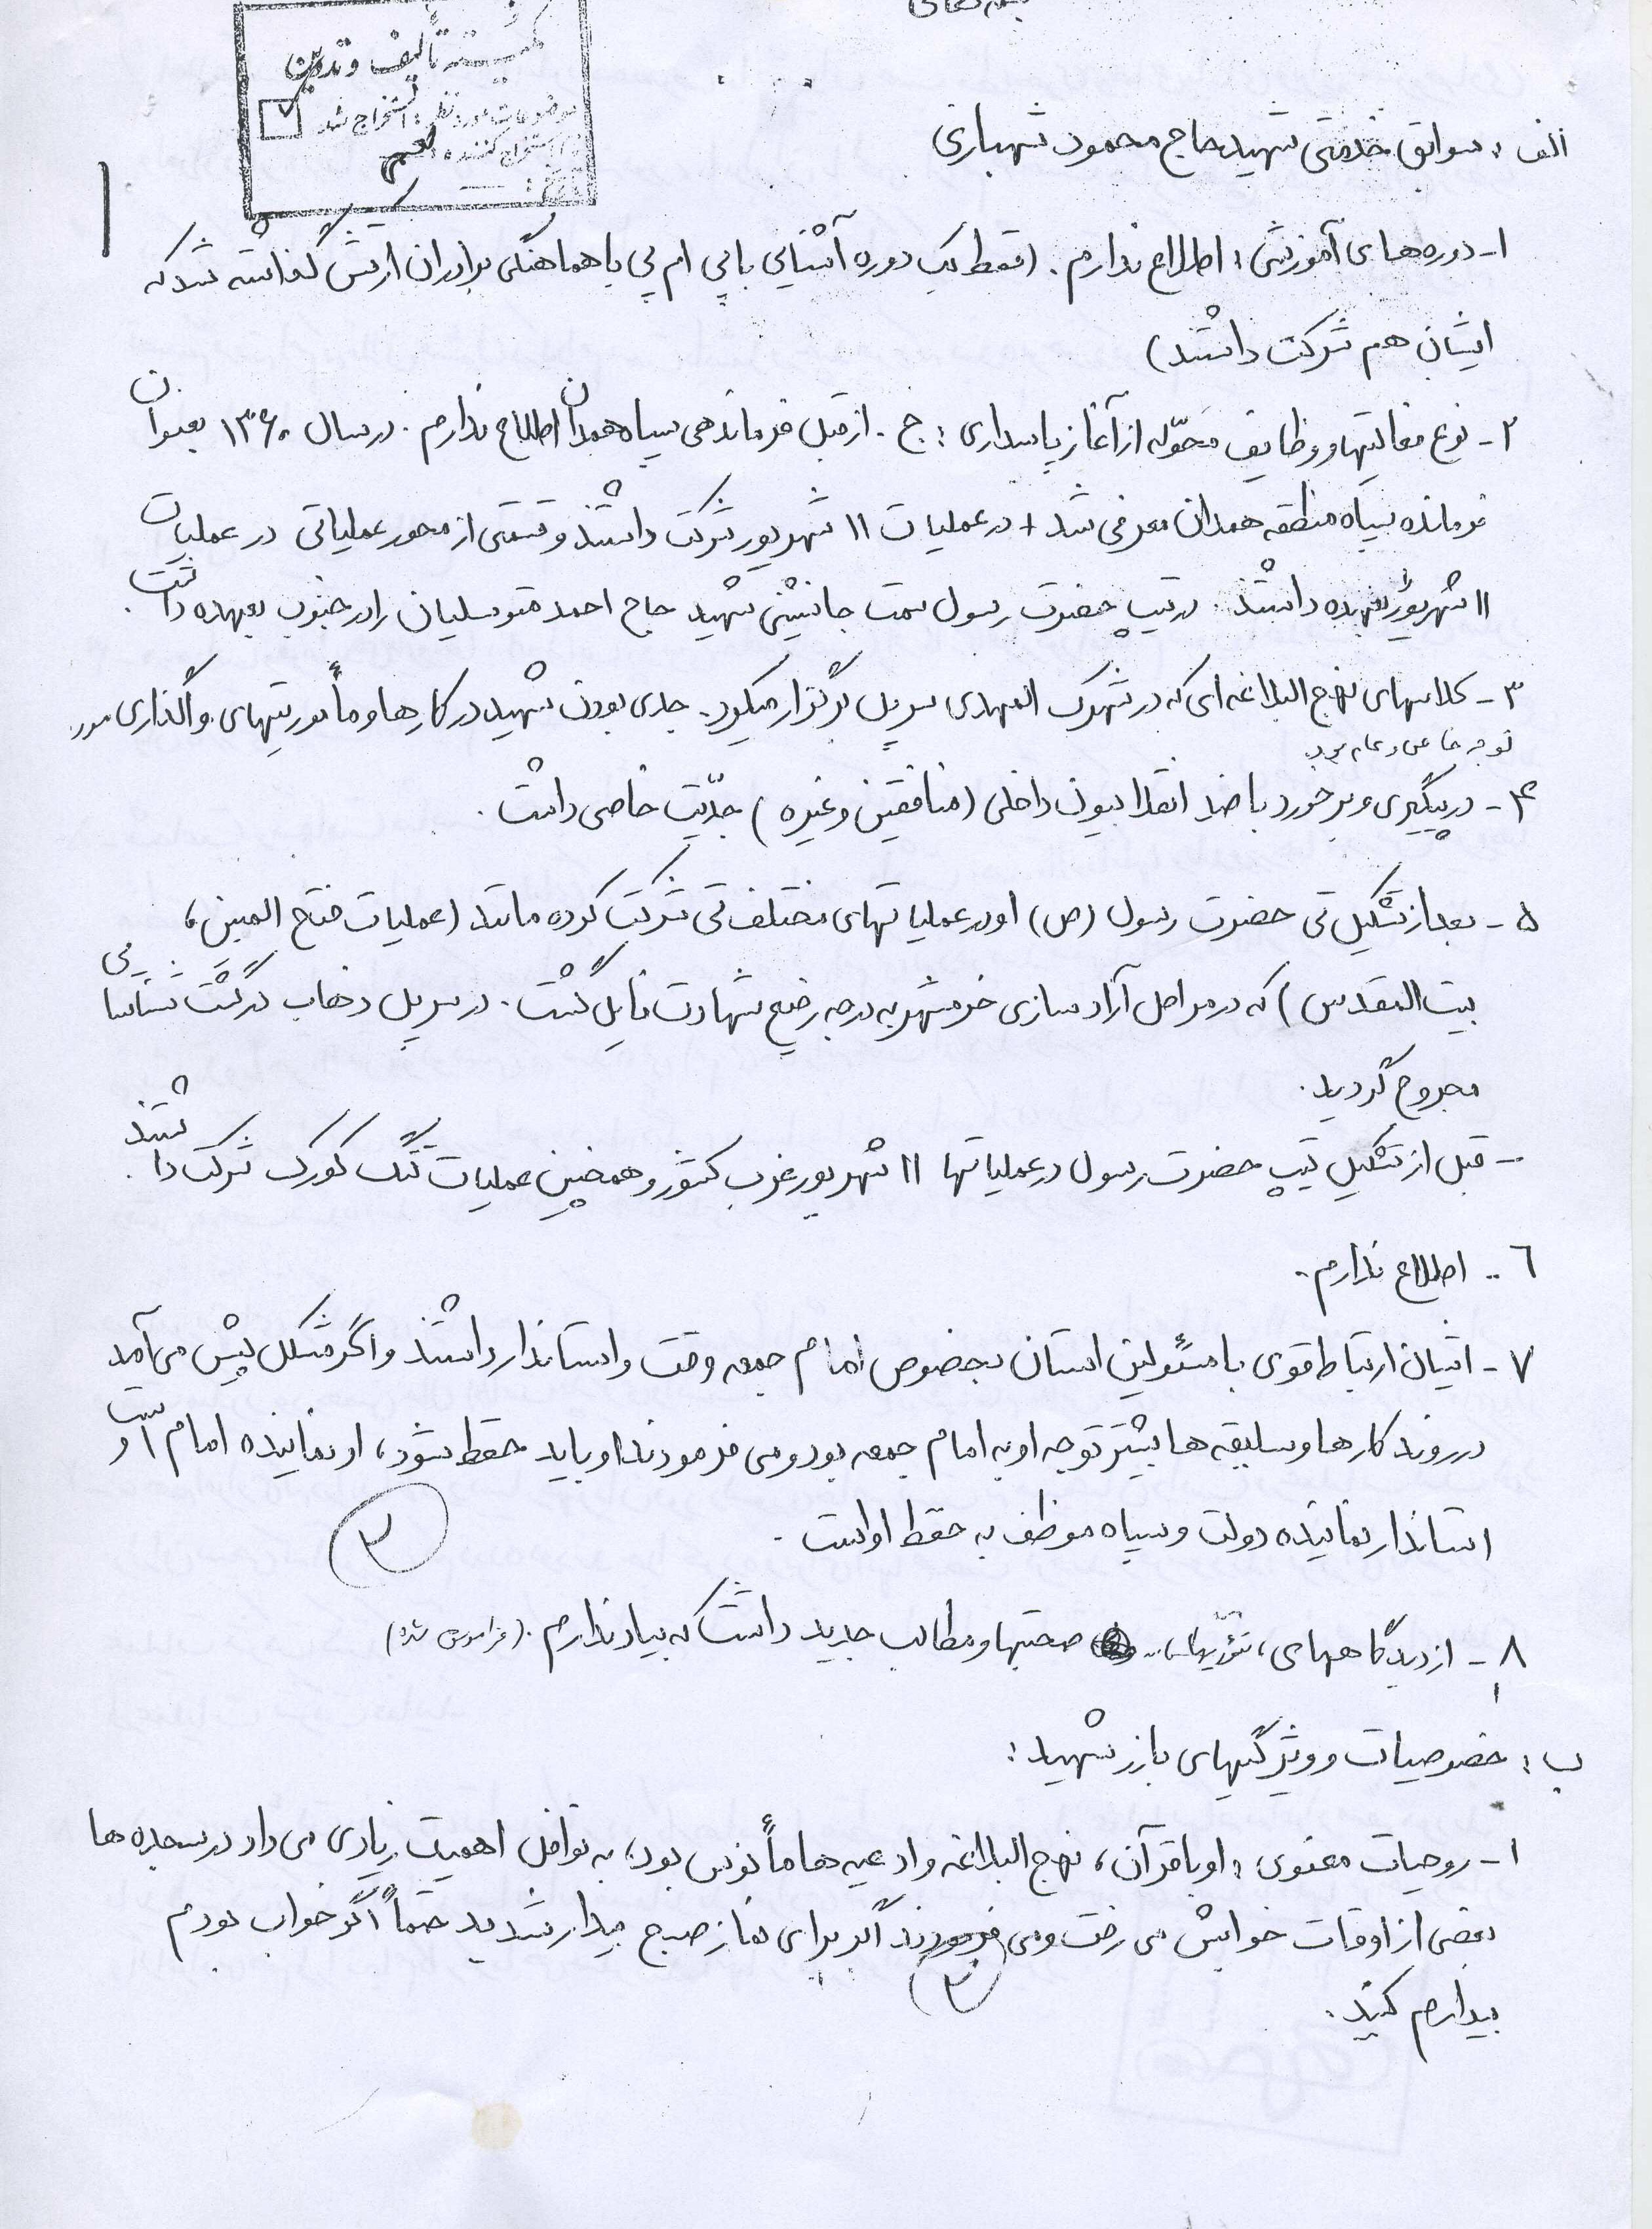 بسمه تعالی
کمیته تألیف و تدوین
موضوعات مورد نظر استخراج شد
استخراج کننده:
تاریخ:
الف: سوابق خدمتی شهید حاج محمود شهبازی
۱- دوره‌های آموزشی: اطلاع ندارم. (فقط یک دوره آشنایی با پی ام پی با هماهنگی برادران ارتش گذاشته شد که
ایشان هم شرکت داشتند)
۲- نوع فعالیتها و وظایف محوّله از آغاز پاسداری: ج. از قبل فرماندهی سپاه همدان اطلاع ندارم. در سال ۱۳۶۰ بعنوان
فرمانده سپاه منطقه همدان معرفی شد + در عملیات ۱۱ شهریور شرکت داشتند و قسمتی از محور عملیاتی در عملیات
۱۱ شهریور بعهده داشتند. در تیپ حضرت رسول سمت جانشینی شهید حاج احمد متوسلیان را در جنوب بعهده داشت.
۳- کلاسهای نهج البلاغه‌ای که در شهرک المهدی سرپل برگزار میکرد. جدی بودن شهید در کارها و مأموریتهای واگذاری مورد
توجه خاص و عام بود.
۴- در پیگیری و برخورد با ضد انقلابیون داخلی (منافقین و غیره) جدّیت خاصی داشت.
۵- بعد از تشکیل تی حضرت رسول (ص) او در عملیاتهای مختلف تی شرکت کرده مانند (عملیات فتح المبین،
بیت المقدس) که در مراحل آزاد سازی خرمشهر به درجه رفیع شهادت نایل گشت. در سرپل ذهاب در گشت شناسایی
مجروح گردید.
- قبل از تشکیل تیپ حضرت رسول در عملیاتها ۱۱ شهریور غرب کشور و همچنین عملیات تنگ کورک شرکت داشتند.
٦- اطلاع ندارم.
۷- ایشان ارتباط قوی با مسئولین استان بخصوص امام جمعه وقت و استاندار داشتند و اگر مشکل پیش می‌آمد
در روند کارها و سلیقه‌ها بیشتر توجه او به امام جمعه بود و می فرمودند او باید حفظ شود، او نماینده امام است و
استاندار نماینده دولت و سپاه موظف به حفظ او است.
۳
۸- از دیدگاههای، تئوریهای... صحبتها و مطالب جدید داشت که بیاد ندارم. (فراموش شده)
ب: خصوصیات و ویژگیهای بارز شهید:
۱- روحیات معنوی: او با قرآن، نهج البلاغه و ادعیه‌ها مأنوس بود، به نوافل اهمیت زیادی می داد در سجده‌ها
بعضی از اوقات خوابش می رفت و می فرمودند اگر برای نماز صبح بیدار شدید حتماً اگر خواب بودم
۳
بیدارم کنید.